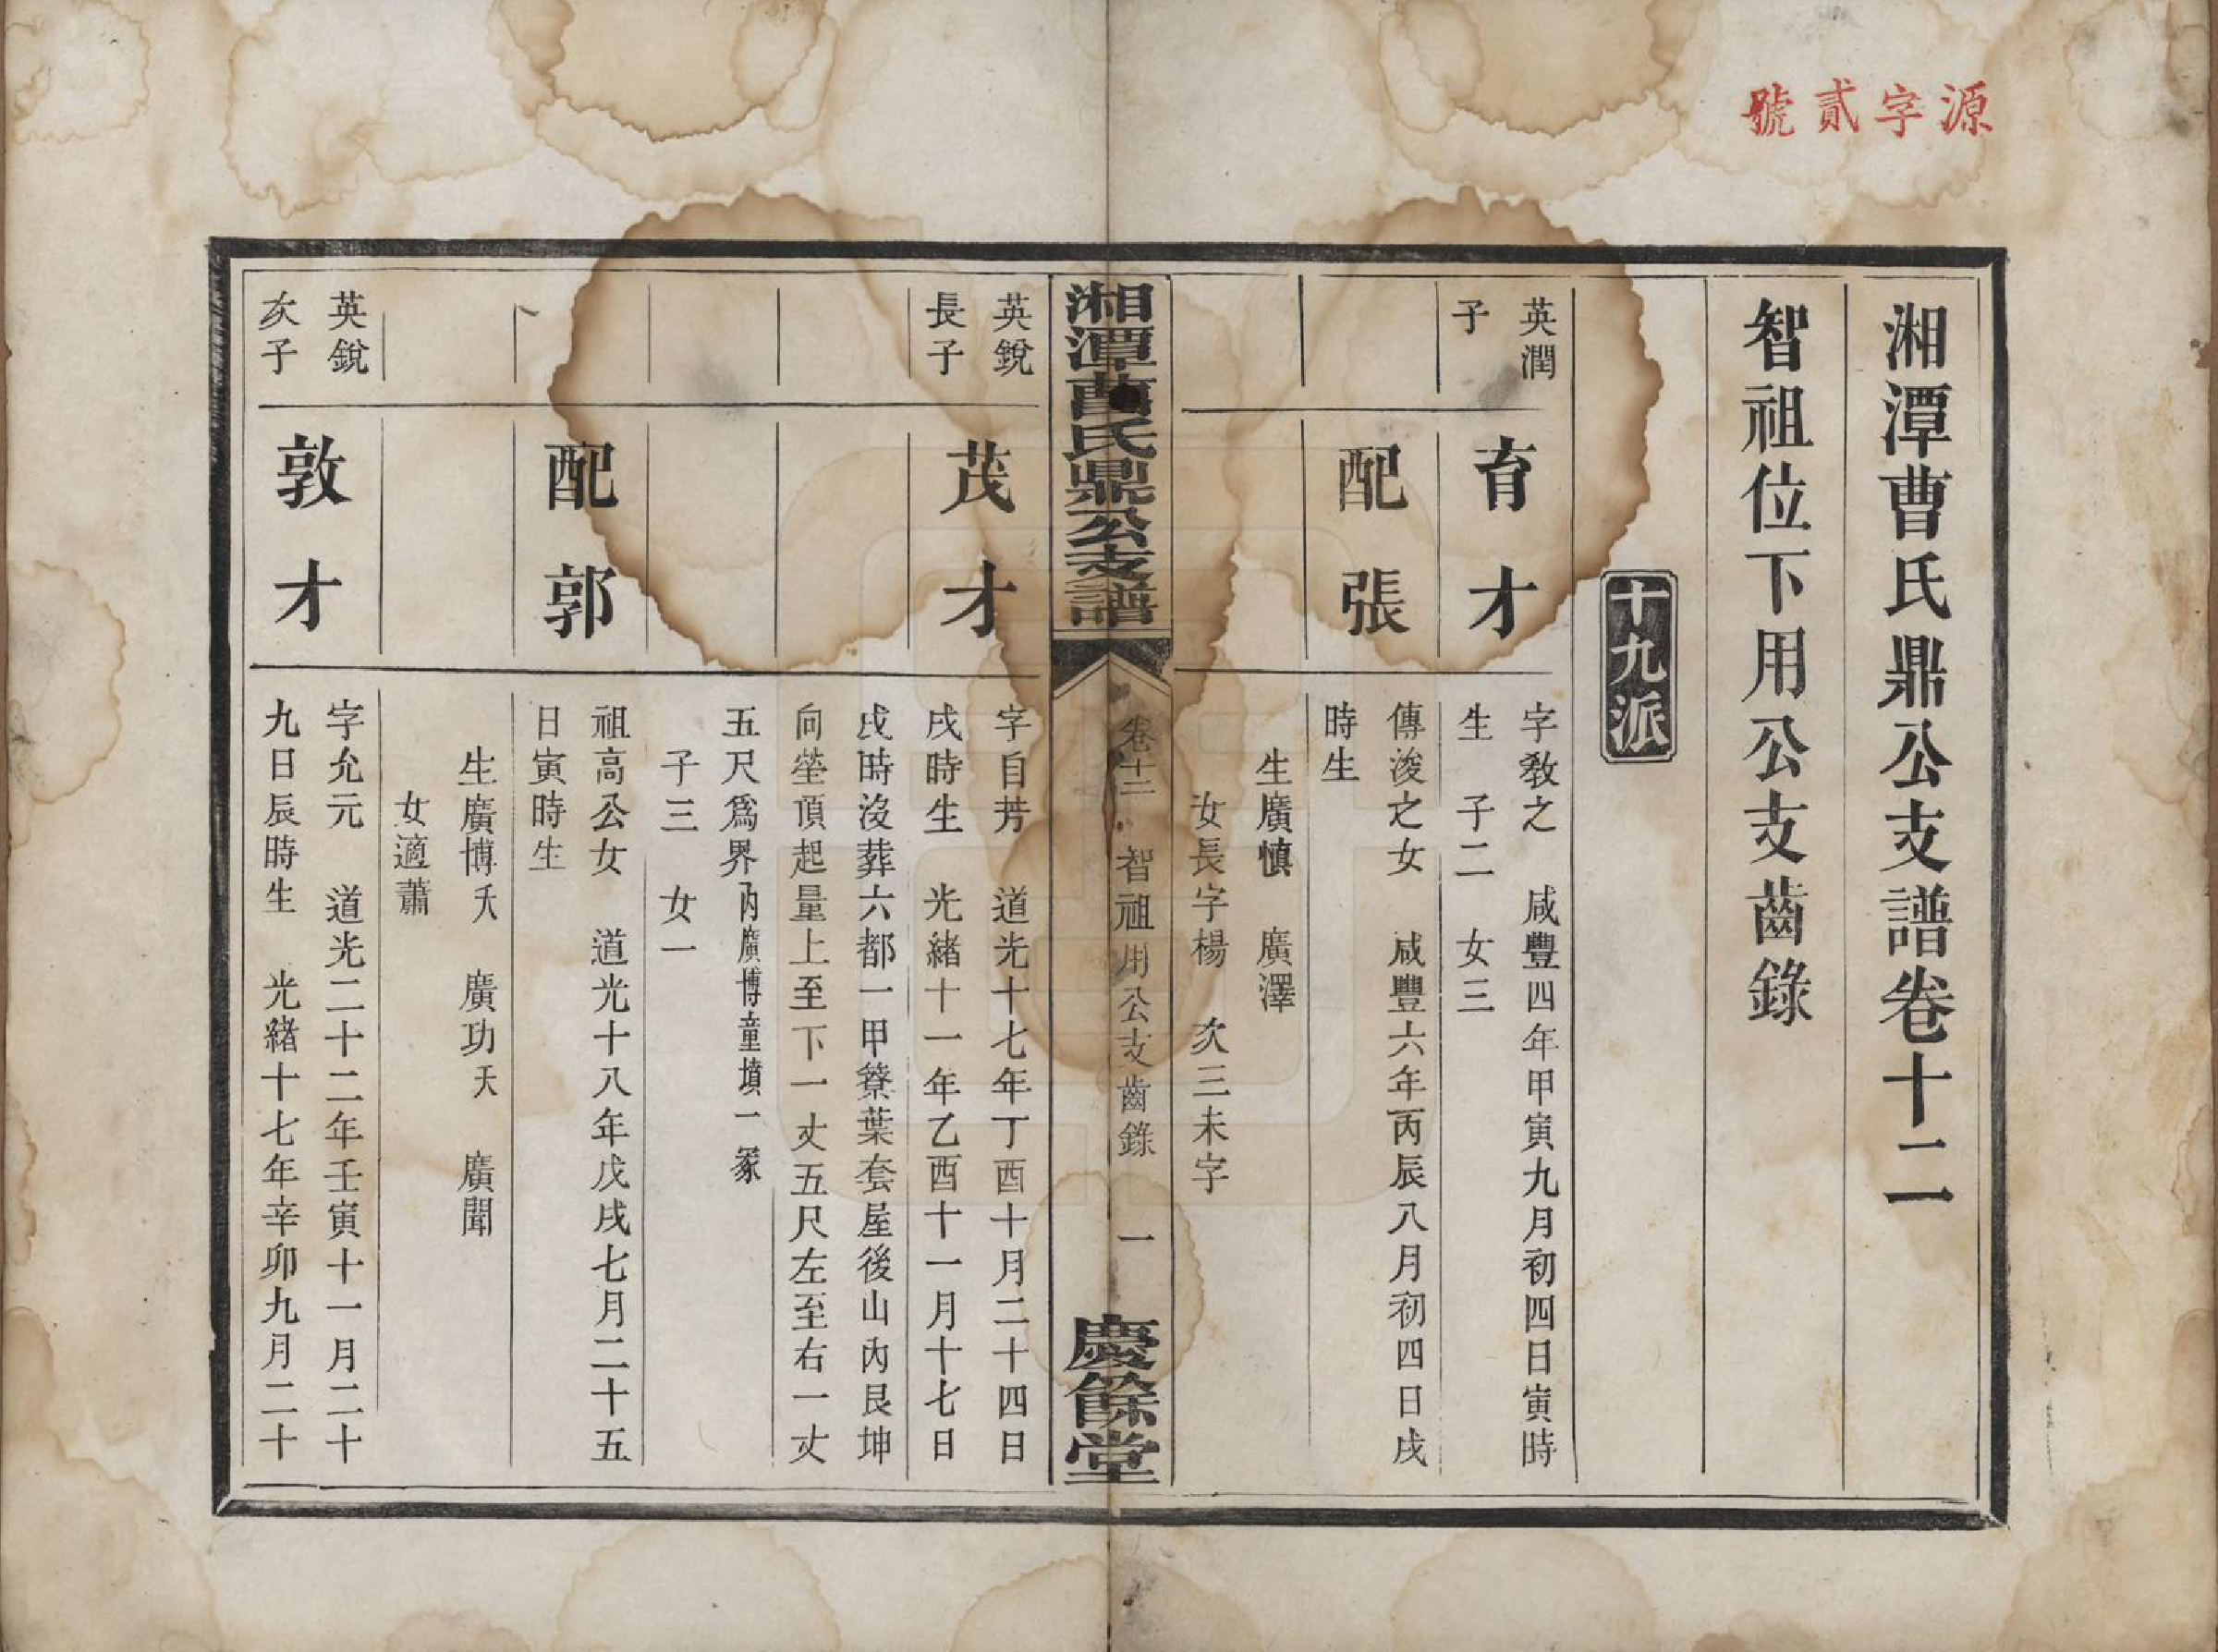 源字貳號
湘潭曹氏鼎公支譜卷十二
智祖位下用公支齒錄
十九派
英潤
子
育才
字敎之 咸豐四年甲寅九月初四日寅時
生 子二 女三
配張
傳浚之女 咸豐六年丙辰八月初四日戌
時生
生廣慎 廣澤
女長字楊 次三未字
湘潭曹氏鼎公支譜
卷十二 智祖用公支齒錄 一
慶餘堂
英銳
長子
茂才
字自芳 道光十七年丁酉十月二十四日
戌時生 光緒十一年乙酉十一月十七日
戌時沒葬六都一甲簝葉套屋後山內艮坤
向塋頂起量上至下一丈五尺左至右一丈
五尺爲界內廣博童墳一冢
子三 女一
配郭
祖高公女 道光十八年戊戌七月二十五
日寅時生
生廣博夭 廣功夭 廣聞
女適蕭
英銳
次子
敦才
字允元 道光二十二年壬寅十一月二十
九日辰時生 光緒十七年辛卯九月二十